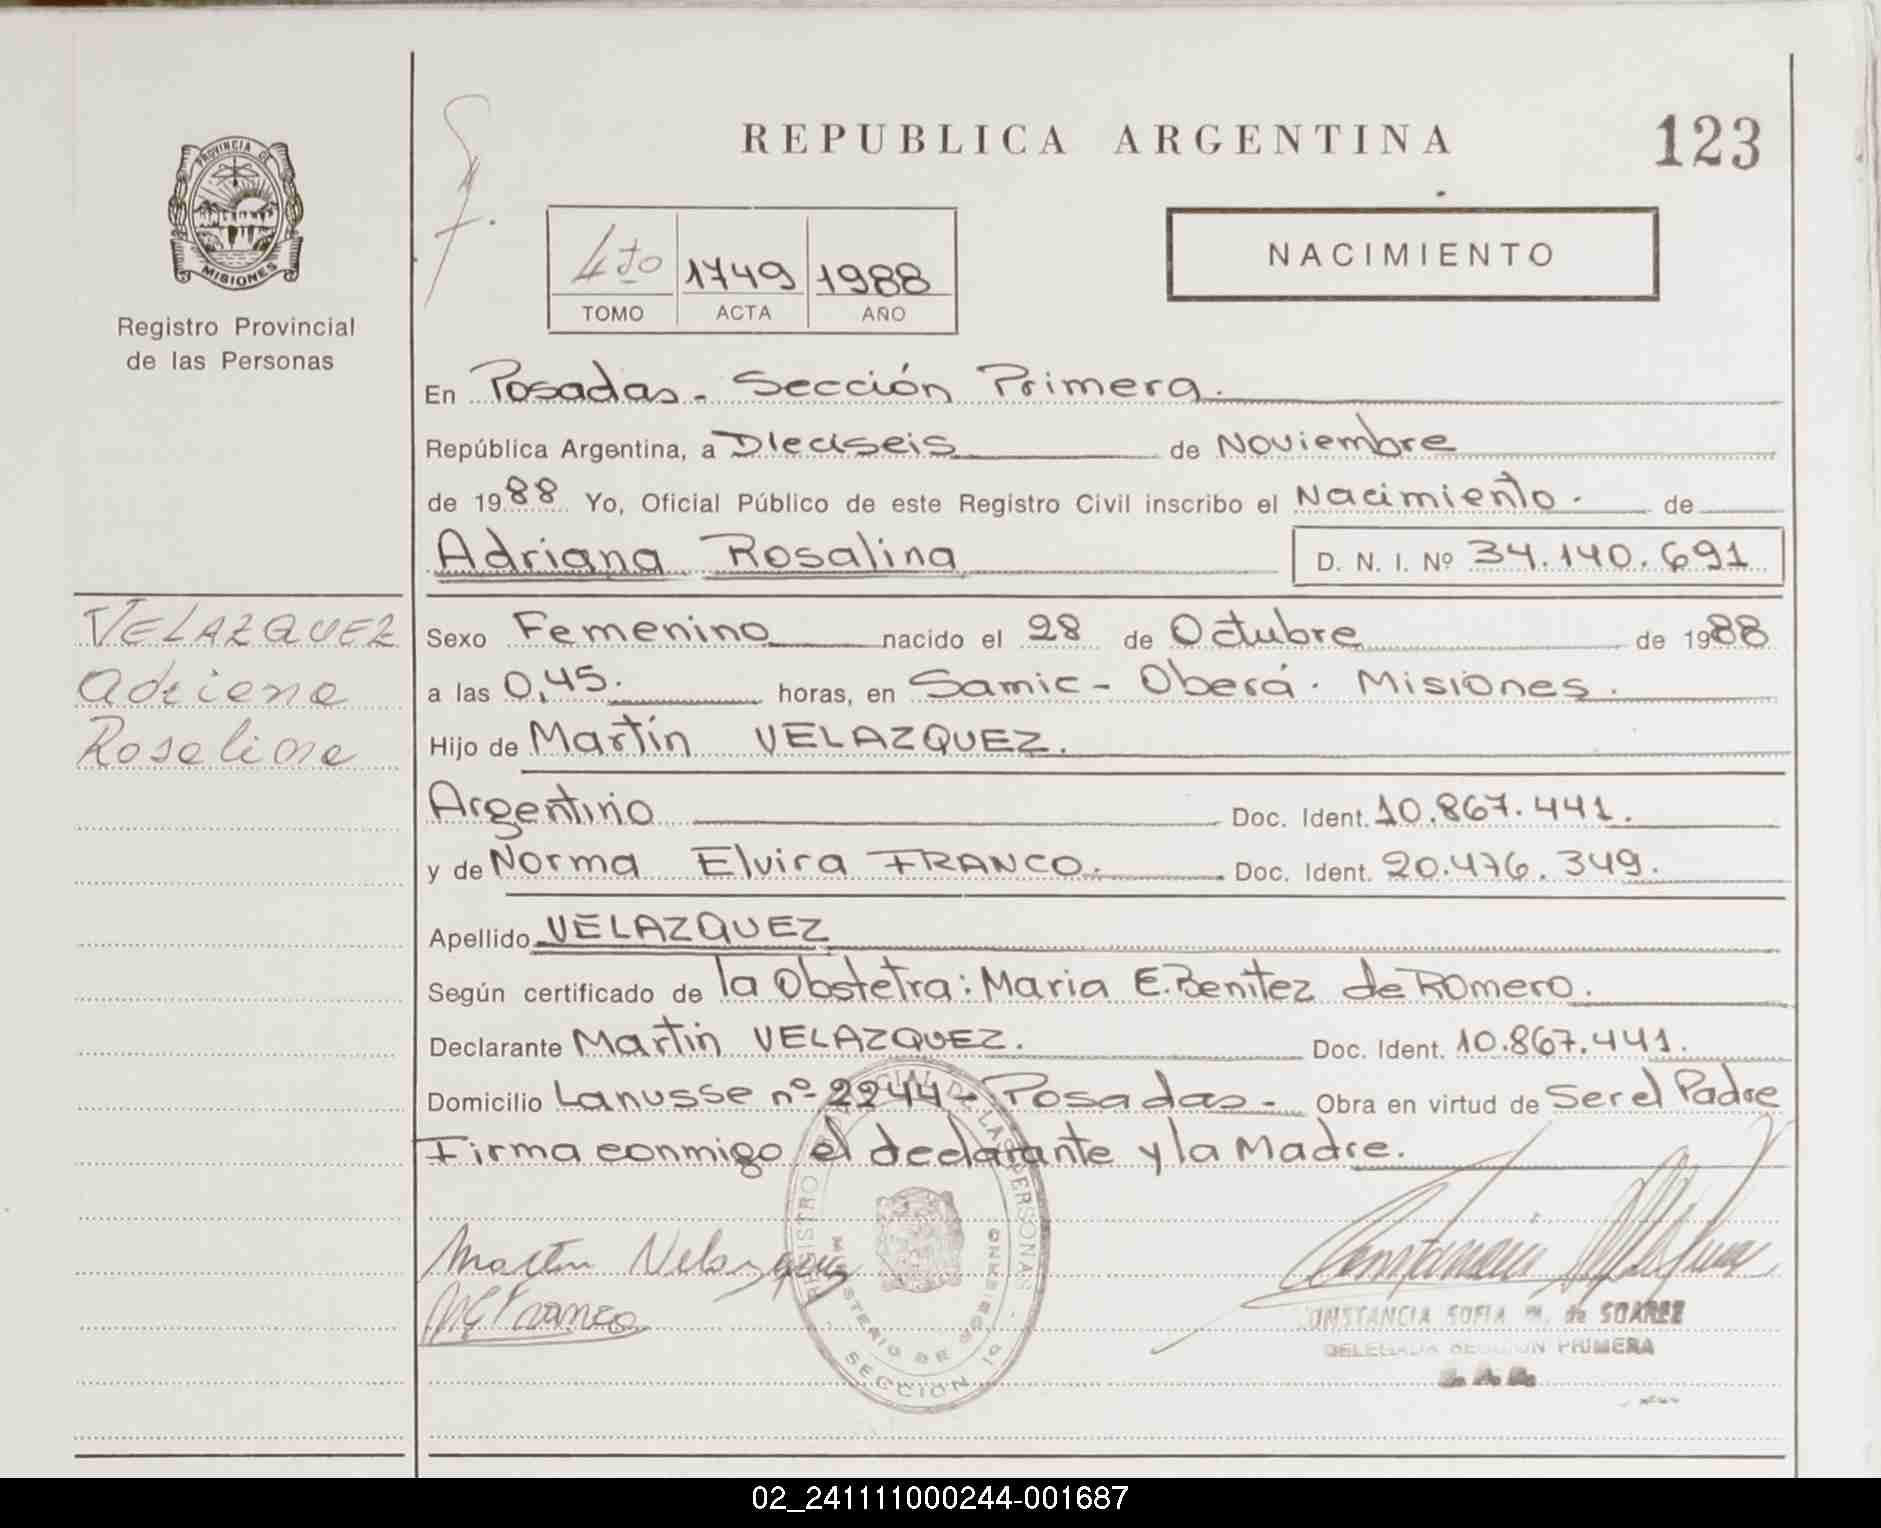 REPUBLICA ARGENTINA
123
PROVINCIA DE
MISIONES
Registro Provincial
de las Personas
4to 1749 1988
TOMO ACTA AÑO
NACIMIENTO
En Posadas - Sección Primera.
República Argentina, a Dieciseis de Noviembre
de 1988 Yo, Oficial Público de este Registro Civil inscribo el Nacimiento. de
Adriana Rosalina D. N. I. Nº 34.140.691
VELAZQUEZ
Adriana
Rosalina
Sexo Femenino nacido el 28 de Octubre de 1988
a las 0,45. horas, en Samic - Oberá. Misiones.
Hijo de Martín VELAZQUEZ.
Argentino Doc. Ident. 10.867.441.
y de Norma Elvira FRANCO. Doc. Ident. 20.476.349.
Apellido VELAZQUEZ
Según certificado de la Obstetra: Maria E. Benitez de Romero.
Declarante Martin VELAZQUEZ. Doc. Ident. 10.867.441.
Domicilio Lanusse nº 2244 - Posadas - Obra en virtud de Ser el Padre
Firma conmigo el declarante y la Madre.
REGISTRO PROVINCIAL DE LAS PERSONAS
MINISTERIO DE GOBIERNO
SECCION 1a
Martin Velazquez
CONSTANCIA SOFIA M. de SOAREZ
DELEGADA SECCION PRIMERA
02_241111000244-001687